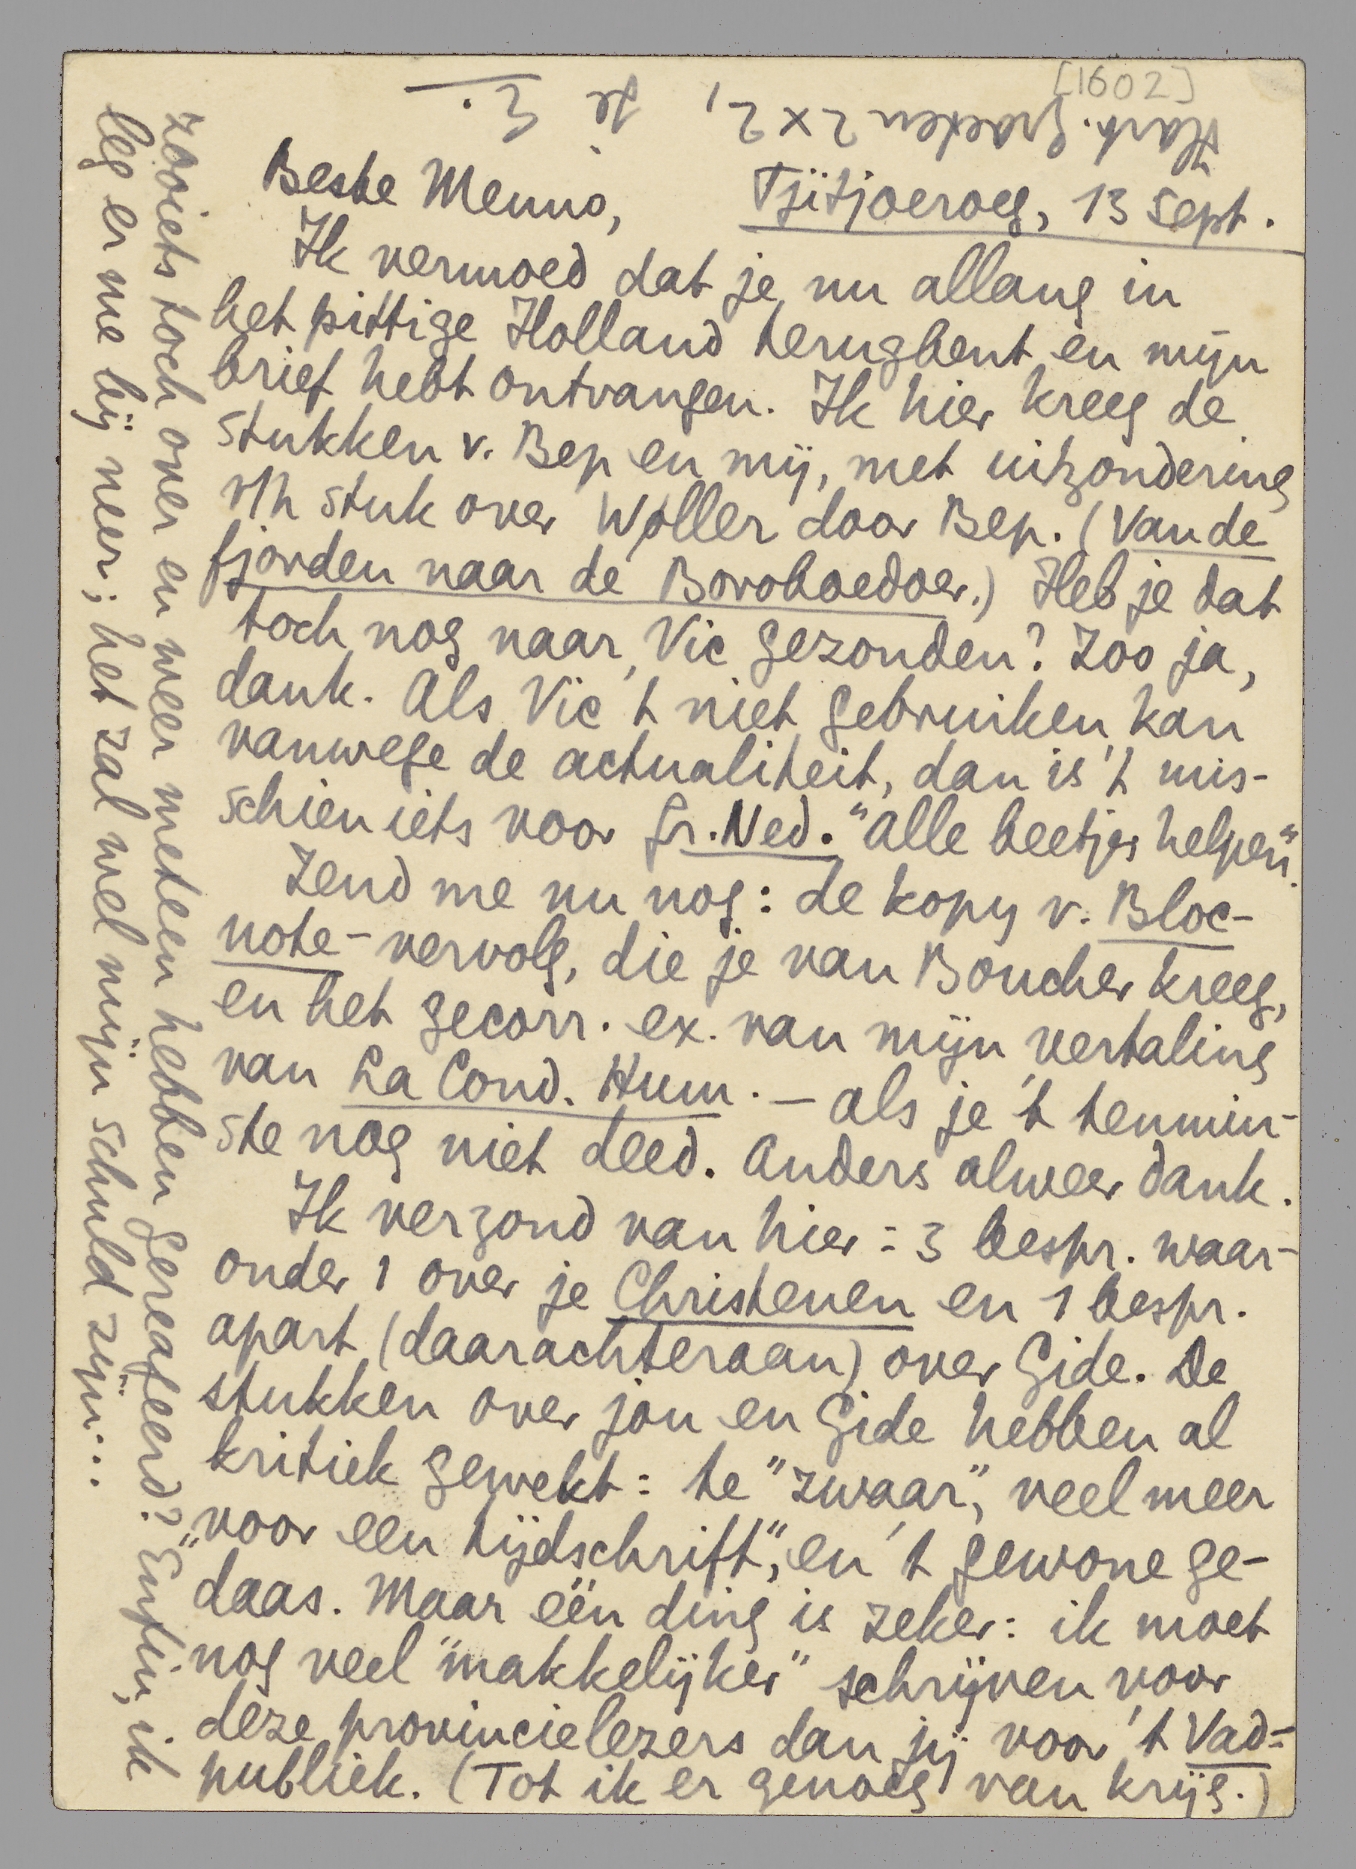 [1602]
Beste Menno,
Tjitjoeroeg, 13 Sept.
Ik vermoed dat je nu allang in
het pittige Holland terugbent en mijn
brief hebt ontvangen. Ik hier kreeg de
stukken v. Bep en mij, met uitzondering
v/h stuk over Woller door Bep. (Van de
fjorden naar de Boroboedoer.) Heb je dat
toch nog naar Vic gezonden? Zoo ja,
dank. Als Vic 't niet gebruiken kan
vanwege de actualiteit, dan is 't mis-
schien iets voor Gr. Ned. "Alle beetjes helpen".
Zend me nu nog: de kopy v. Bloc-
note-vervolg, die je van Boucher kreeg,
en het gecorr. ex. van mijn vertaling
van La Cond. Hum. – als je 't tenmin-
ste nog niet deed. Anders alweer dank.
Ik verzond van hier: 3 bespr. waar-
onder 1 over je Christenen en 1 bespr.
apart (daarachteraan) over Gide. De
stukken over jou en Gide hebben al
kritiek gewekt: te "zwaar", veel meer
"voor een tijdschrift", en 't gewone ge-
daas. Maar één ding is zeker: ik moet
nog veel "makkelijker" schrijven voor
deze provincielezers dan jij voor 't Vad-
publiek. (Tot ik er genoeg van krijg.)
Zooiets toch over en weer meteen hebben gereageerd? Enfin, ik
leg er me bij neer; het zal wel mijn schuld zijn...
Hart. groeten 2 x 2, je E.